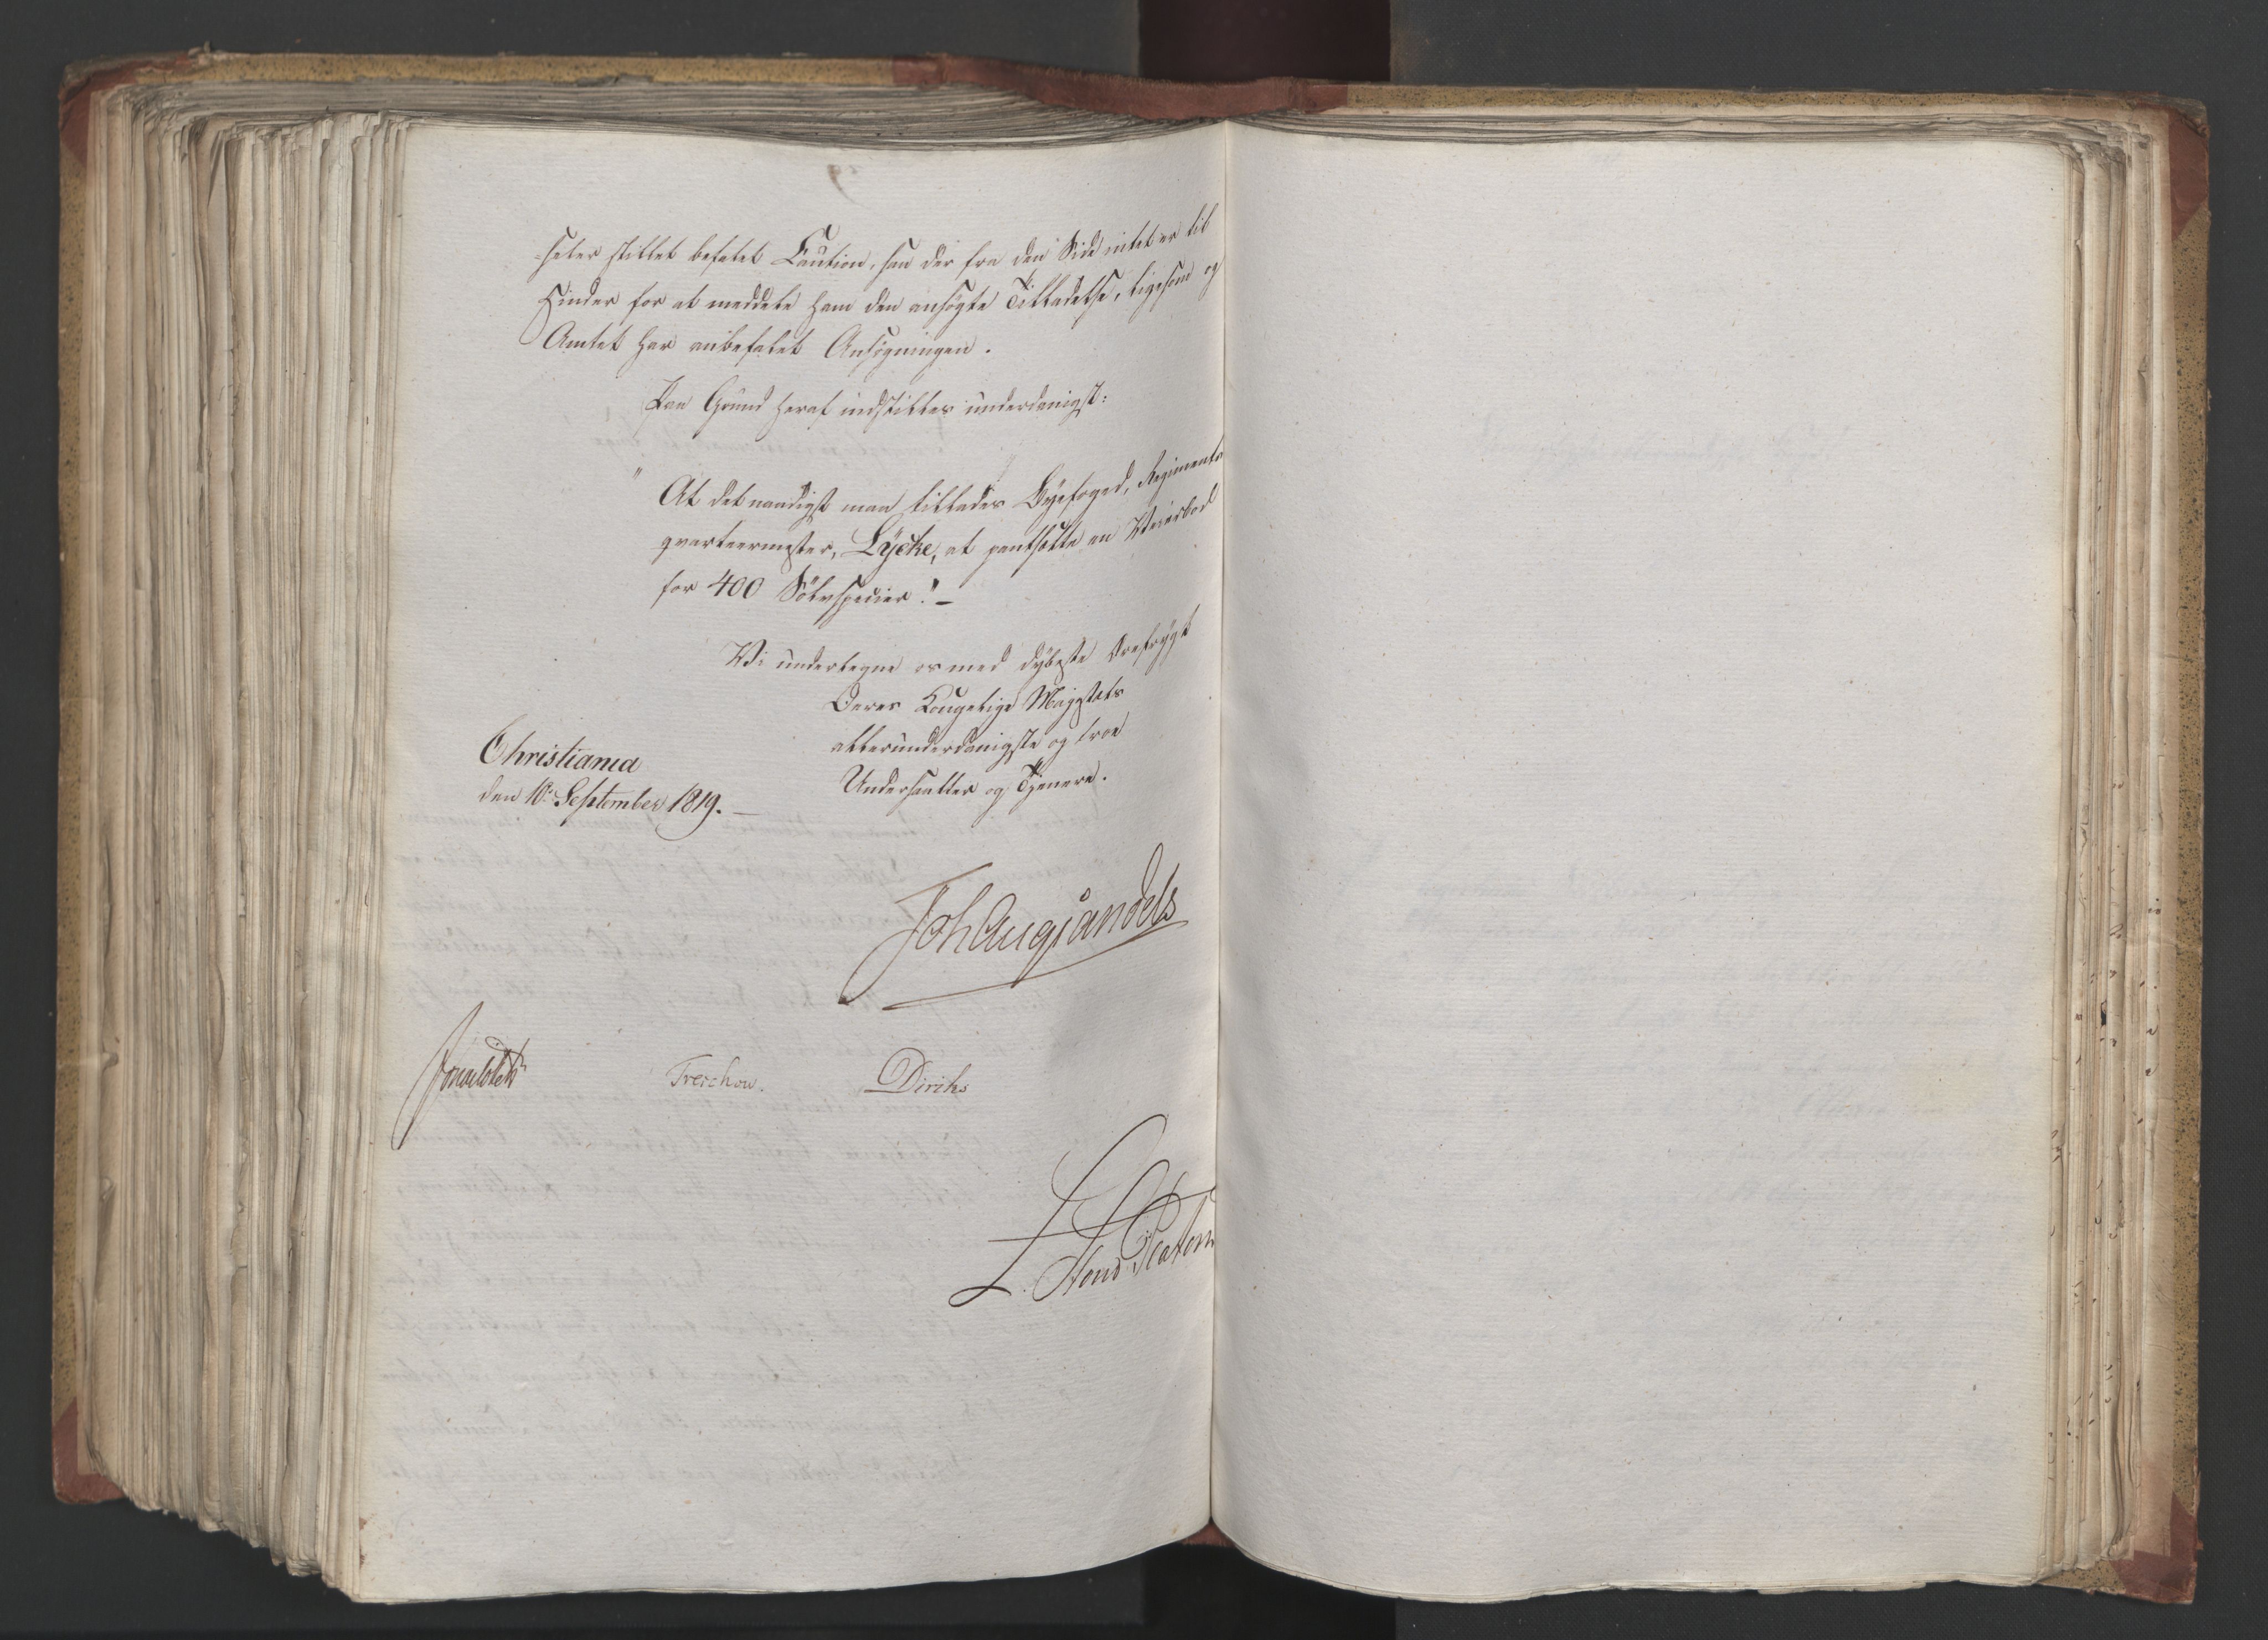 -heler stillet befalet Caution, san der fra den Side intet er til
Hinder for at meddele ham den ansøgte Tilladelse, ligesom og
Amtet har anbefalet Ansøgningen.
Paa Grund heraf indstilles underdanigst:
" At det naadigst maa tillades Byefoged, Regiments
qvarteermester, Lÿcke, at pantsætte en
for 400 Sölvspecier." –
Vi undertegne os med dÿbeste Ærefrÿgt
Deres Kongelige Majestæts
allerunderdanigste og troe
Undersaatter og Tjenere.
Christiania
den 10de September 1819. –
Joh Aug Sandels
Treschow.
Diriks